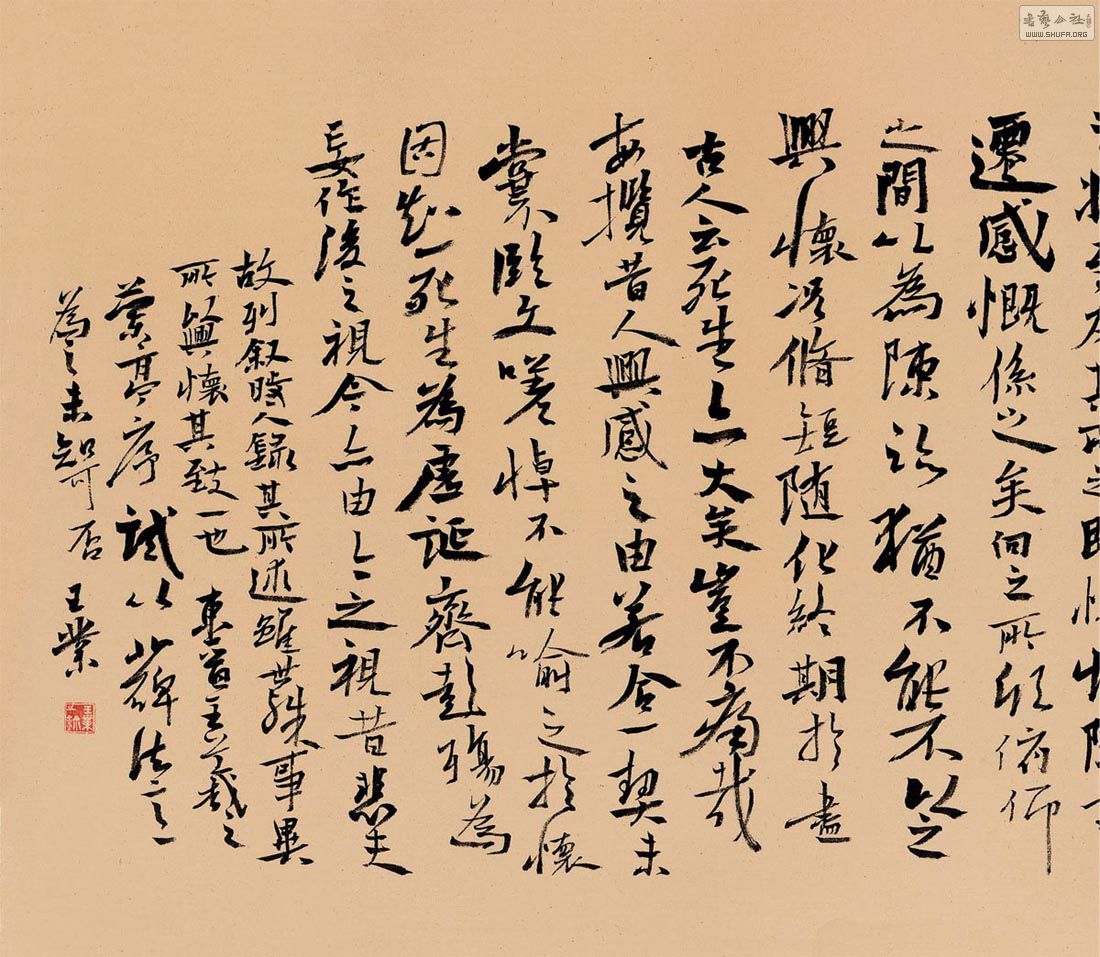 遷感慨係之矣向之所欣俯仰
之間以為陳跡猶不能不以之
興懷况脩短随化終期於盡
古人云死生亦大矣豈不痛哉
每攬昔人興感之由若合一契未
嘗臨文嗟悼不能喻之於懷
固知一死生為虛誕齊彭殤為
妄作後之視今亦由今之視昔悲夫
故列叙時人録其所述雖世殊事異
所以興懷其致一也 東晉王羲之
蘭亭序 試以北碑法意
為之未知可否 王業
書藝公社
WWW.SHUFA.ORG